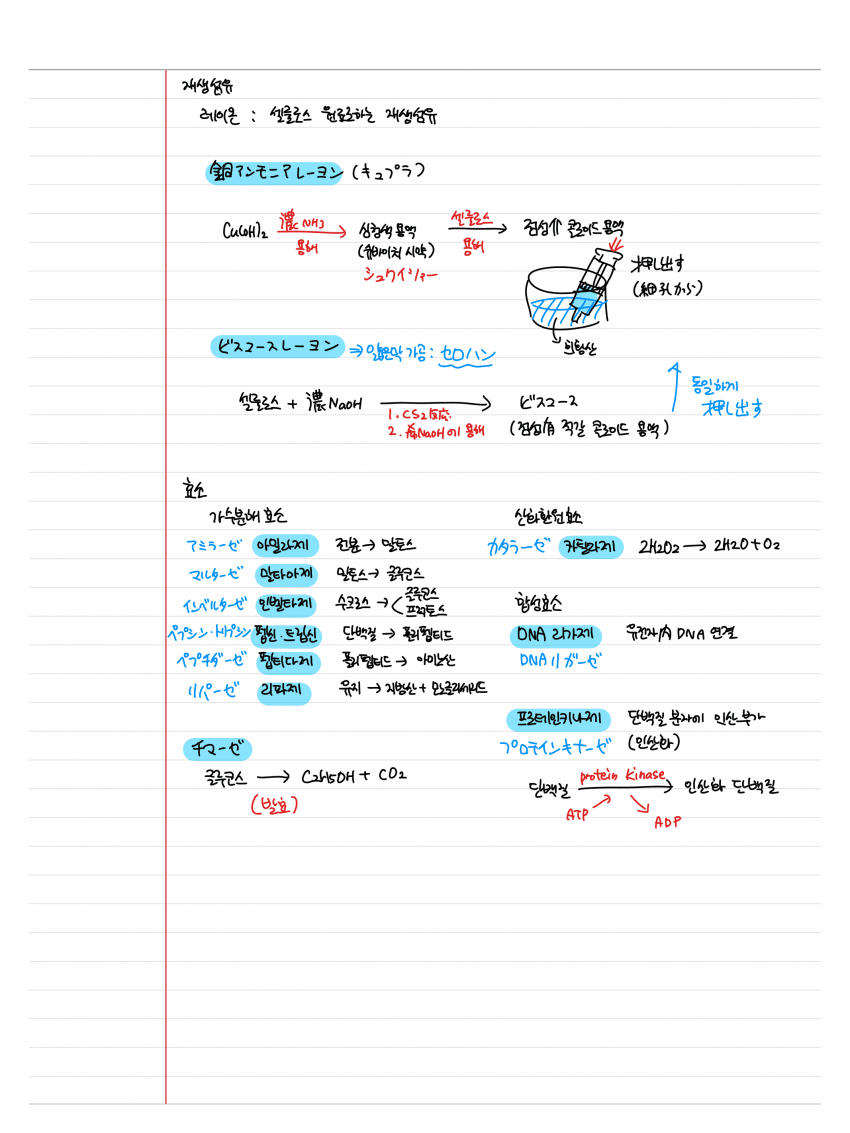 재생섬유
레이온 : 셀룰로스 원료로하는 재생섬유
銅アンモニアレーヨン (キュプラ)
Cu(OH)2 濃NH3 용해 → 심청색 용액 셀룰로스 용해 → 점성有 콜로이드 용액
(슈바이처 시약)
シュワイツァー
押し出す
(細孔から)
희황산
ビスコースレーヨン ⇒ 얇은막 가공 : セロハン
동일하게
押し出す
셀룰로스 + 濃NaOH → ビスコース
1. CS2反応
2. 希NaOH에 용해
(점성有 적갈 콜로이드 용액)
효소
가수분해 효소
アミラーゼ 아밀라제 전분 → 말토스
マルターゼ 말타아제 말토스 → 글루코스
インベルターゼ 인벨타제 수크로스 → 글루코스 프럭토스
ペプシン・トリプシン 펩신·트립신 단백질 → 폴리펩티드
ペプチダーゼ 펩티다제 폴리펩티드 → 아미노산
リパーゼ 리파제 유지 → 지방산 + 모노글리세리드
チマーゼ
글루코스 → C2H5OH + CO2
(발효)
산화환원효소
カタラーゼ 카탈라제 2H2O2 → 2H2O + O2
합성효소
DNA 리가제 유전자内 DNA 연결
DNAリガーゼ
프로테인키나제 단백질 분자에 인산 부가
プロテインキナーゼ (인산화)
단백질 protein kinase → 인산화 단백질
ATP ADP